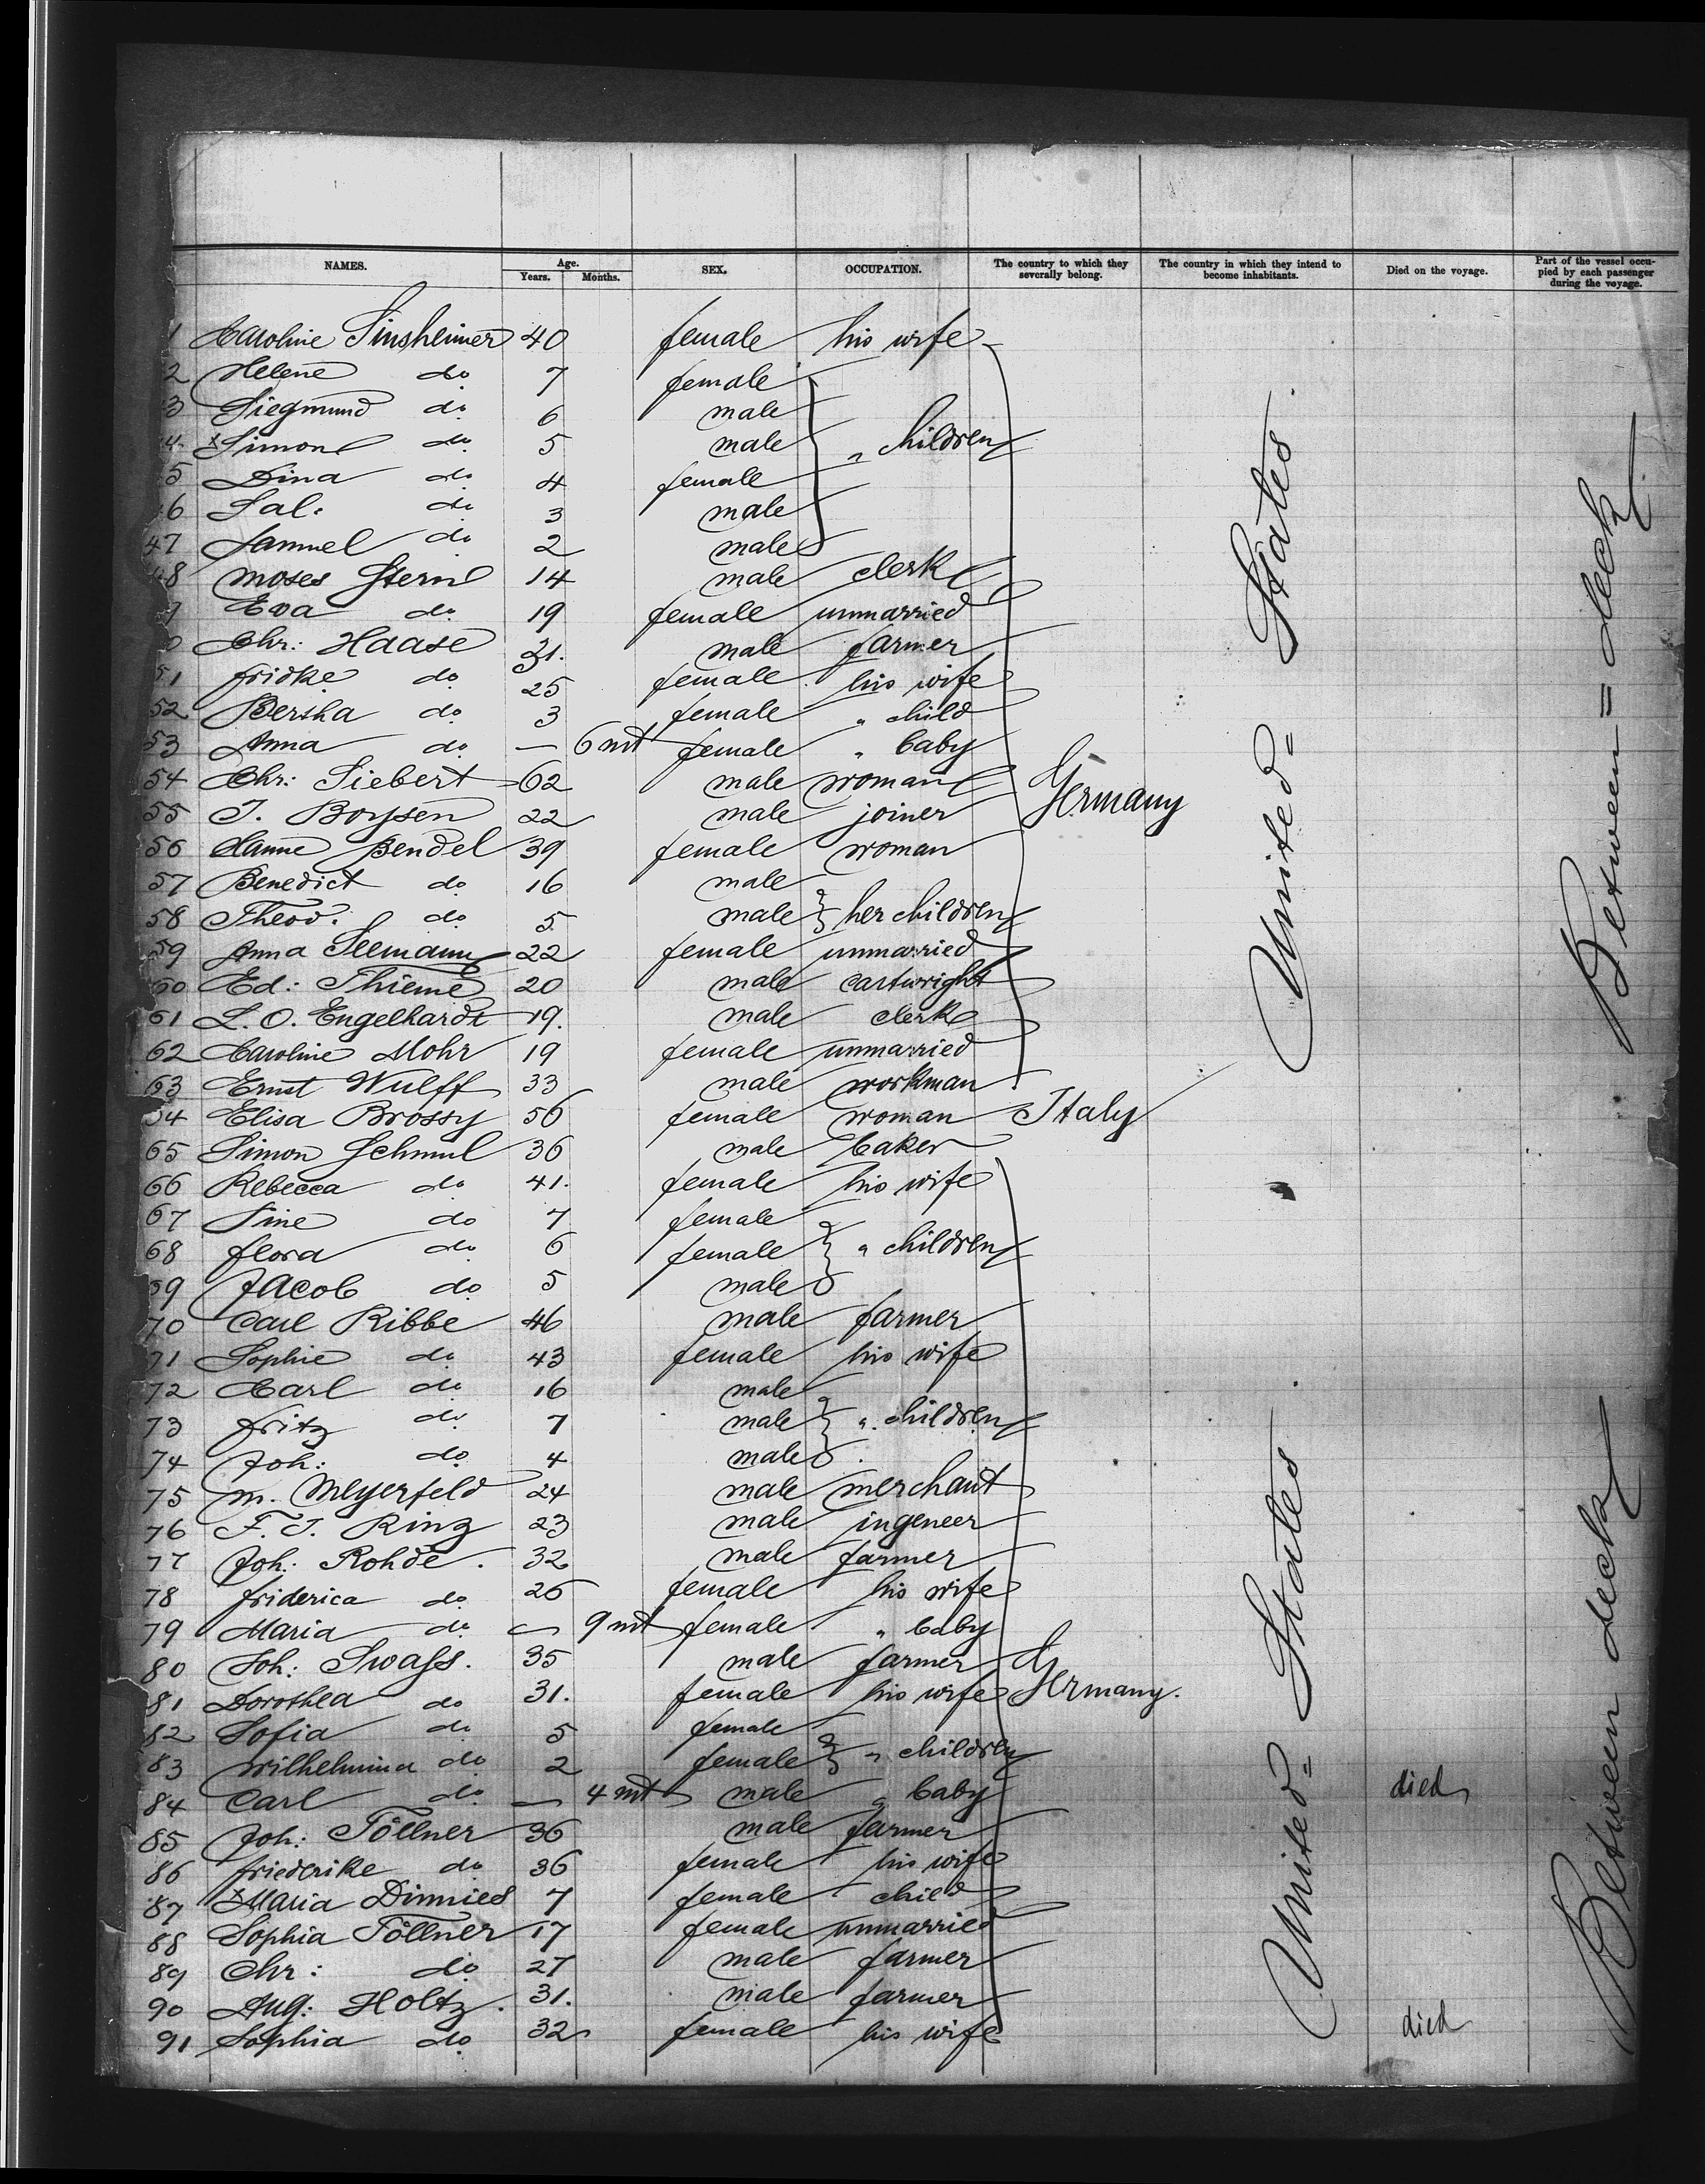 NAMES. Age. Years. Months. SEX. OCCUPATION. The country to which they severally belong. The country in which they intend to become inhabitants. Died on the voyage. Part of the vessel occupied by each passenger during the voyage.
1 Caroline Sinsheimer 40 female his wife
2 Helene do 7 female
3 Siegmund do 6 male
4 x Simon do 5 male " children
5 Dina do 4 female
6 Sal. do 3 male
47 Samuel do 2 male
48 Moses Stern 14 male clerk
9 Eva do 19 female unmarried
0 Chr: Haase 31. male farmer
51 Fridke do 25 female his wife
52 Bertha do 3 female " child
53 Anna do — 6 mt female " baby
54 Chr: Siebert 62 male woman Germany
55 J. Boysen 22 male joiner
56 Hanne Bendel 39 female woman
57 Benedict do 16 male
58 Theod. do 5 male her children
59 Anna Seemann 22 female unmarried
60 Ed: Thieme 20 male cartwright
61 L. O. Engelhardt 19. male clerk
62 Caroline Mohr 19 female unmarried
63 Ernst Wulff 33 male workman
64 Elisa Brossy 56 female woman Italy
65 Simon Schmul 36 male baker
66 Rebecca do 41. female his wife
67 Sine do 7 female
68 Flora do 6 female " children
69 Jacob do 5 male
70 Carl Ribbe 46 male farmer
71 Sophie do 43 female his wife
72 Carl do 16 male
73 Fritz do 7 male " children
74 Joh: do 4 male
75 M. Meyerfeld 24 male merchant
76 F. J. Rinz 23 male ingeneer
77 Joh: Rohde. 32 male farmer
78 Friderica do 26 female his wife
79 Maria do — 9 mt female " baby
80 Joh: Swaſs. 35 male farmer
81 Dorothea do 31. female his wife Germany.
82 Sofia do 5 female
83 Wilhelmina do 2 female " children
84 Carl do — 4 mt male " baby died
85 Joh: Töllner 36 male farmer
86 Friederike do 36 female his wife
87 x Maria Dinnies 7 female child
88 Sophia Töllner 17 female unmarried
89 Chr: do 27 male farmer
90 Aug: Holtz. 31. male farmer
91 Sophia do 32 female his wife died
United= States
United= States
Between= deck
Between deck